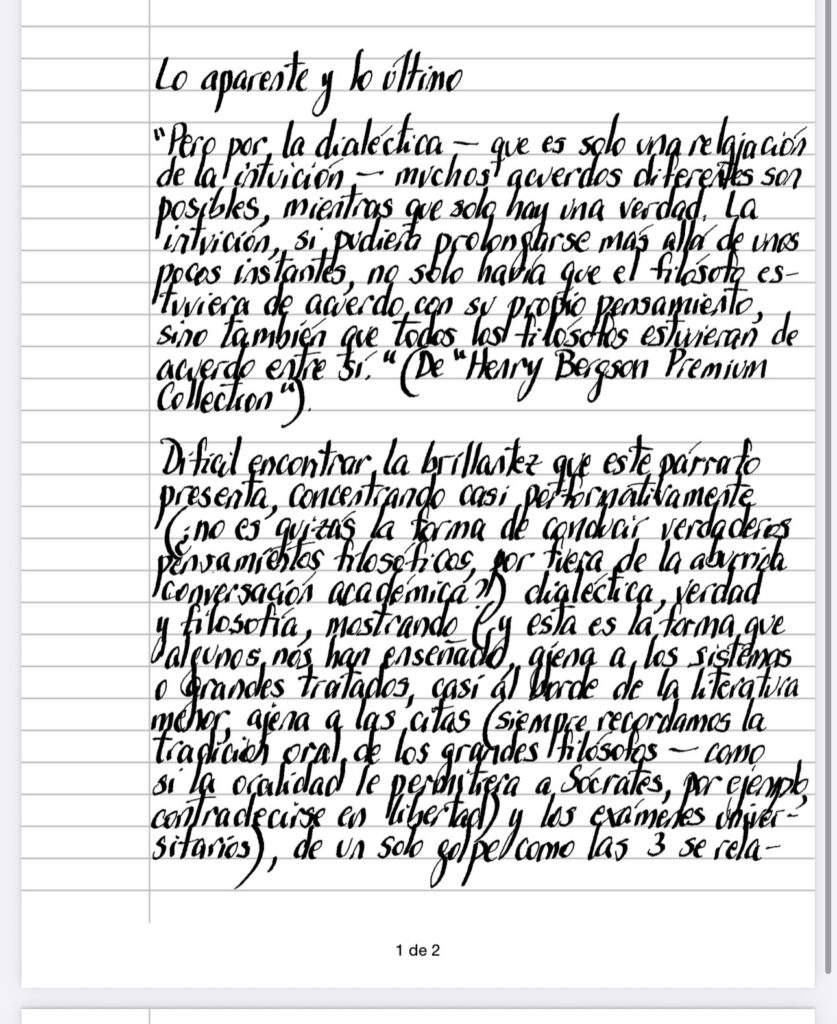 Lo aparente y lo último
"Pero por la dialéctica — que es solo una relajación
de la intuición — muchos acuerdos diferentes son
posibles, mientras que solo hay una verdad. La
intuición, si pudiera prolongarse más allá de unos
pocos instantes, no solo haría que el filósofo es-
tuviera de acuerdo con su propio pensamiento,
sino también que todos los filósofos estuvieran de
acuerdo entre sí." (De "Henry Bergson Premium
Collection").
Dificil encontrar la brillantez que este párrafo
presenta, concentrando casi performativamente
(¿no es quizás la forma de conducir verdaderos
pensamientos filosóficos, por fuera de la aburrida
conversación académica?) dialéctica, verdad
y filosofía, mostrando (y esta es la forma que
algunos nos han enseñado, ajena a los sistemas
o grandes tratados, casi al borde de la literatura
menor, ajena a las citas (siempre recordamos la
tradición oral de los grandes filósofos — como
si la oralidad le permitiera a Sócrates, por ejemplo,
contradecirse en libertad) y los exámenes univer-
sitarios), de un solo golpe como las 3 se rela-
1 de 2